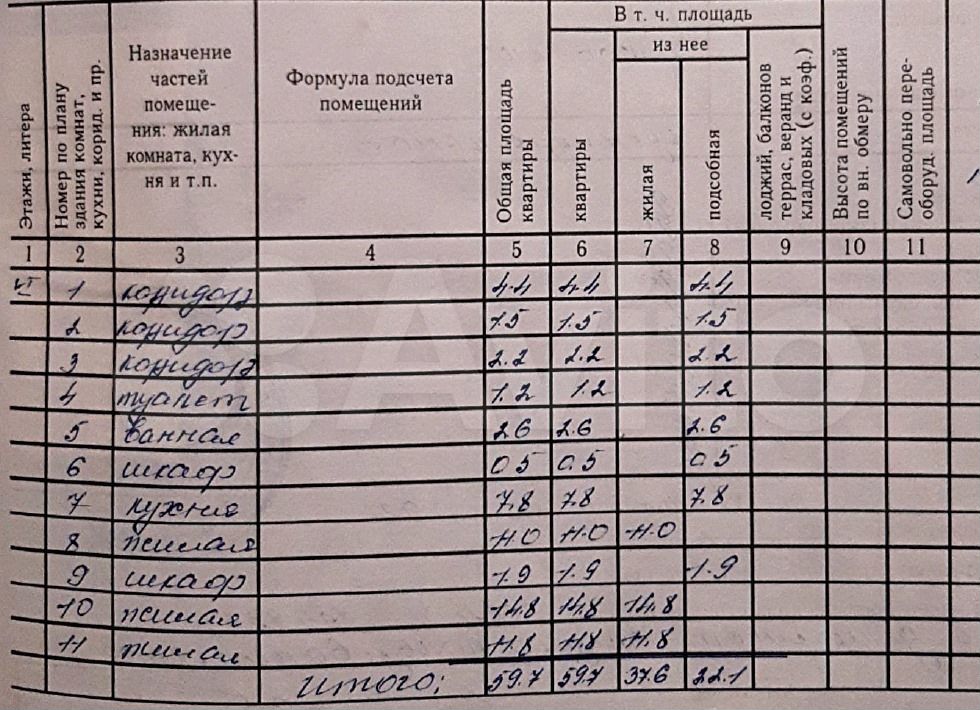 Этажи, литера
Номер по плану здания комнат, кухни, корид. и пр.
Назначение частей помеще- ния: жилая комната, кух- ня и т.п.
Формула подсчета помещений
Общая площадь квартиры
В т. ч. площадь
из нее
квартиры
жилая
подсобная
лоджий, балконов террас, веранд и кладовых (с коэф.)
Высота помещений по вн. обмеру
Самовольно пере- оборуд. площадь
1 2 3 4 5 6 7 8 9 10 11
1 коридор 4.4 4.4 4.4
2 коридор 1.5 1.5 1.5
3 коридор 2.2 2.2 2.2
4 туалет 1.2 1.2 1.2
5 ванная 2.6 2.6 2.6
6 шкаф 0.5 0.5 0.5
7 кухня 7.8 7.8 7.8
8 жилая 11.0 11.0 11.0
9 шкаф 1.9 1.9 1.9
10 жилая 14.8 14.8 14.8
11 жилая 11.8 11.8 11.8
Итого: 59.7 59.7 37.6 22.1